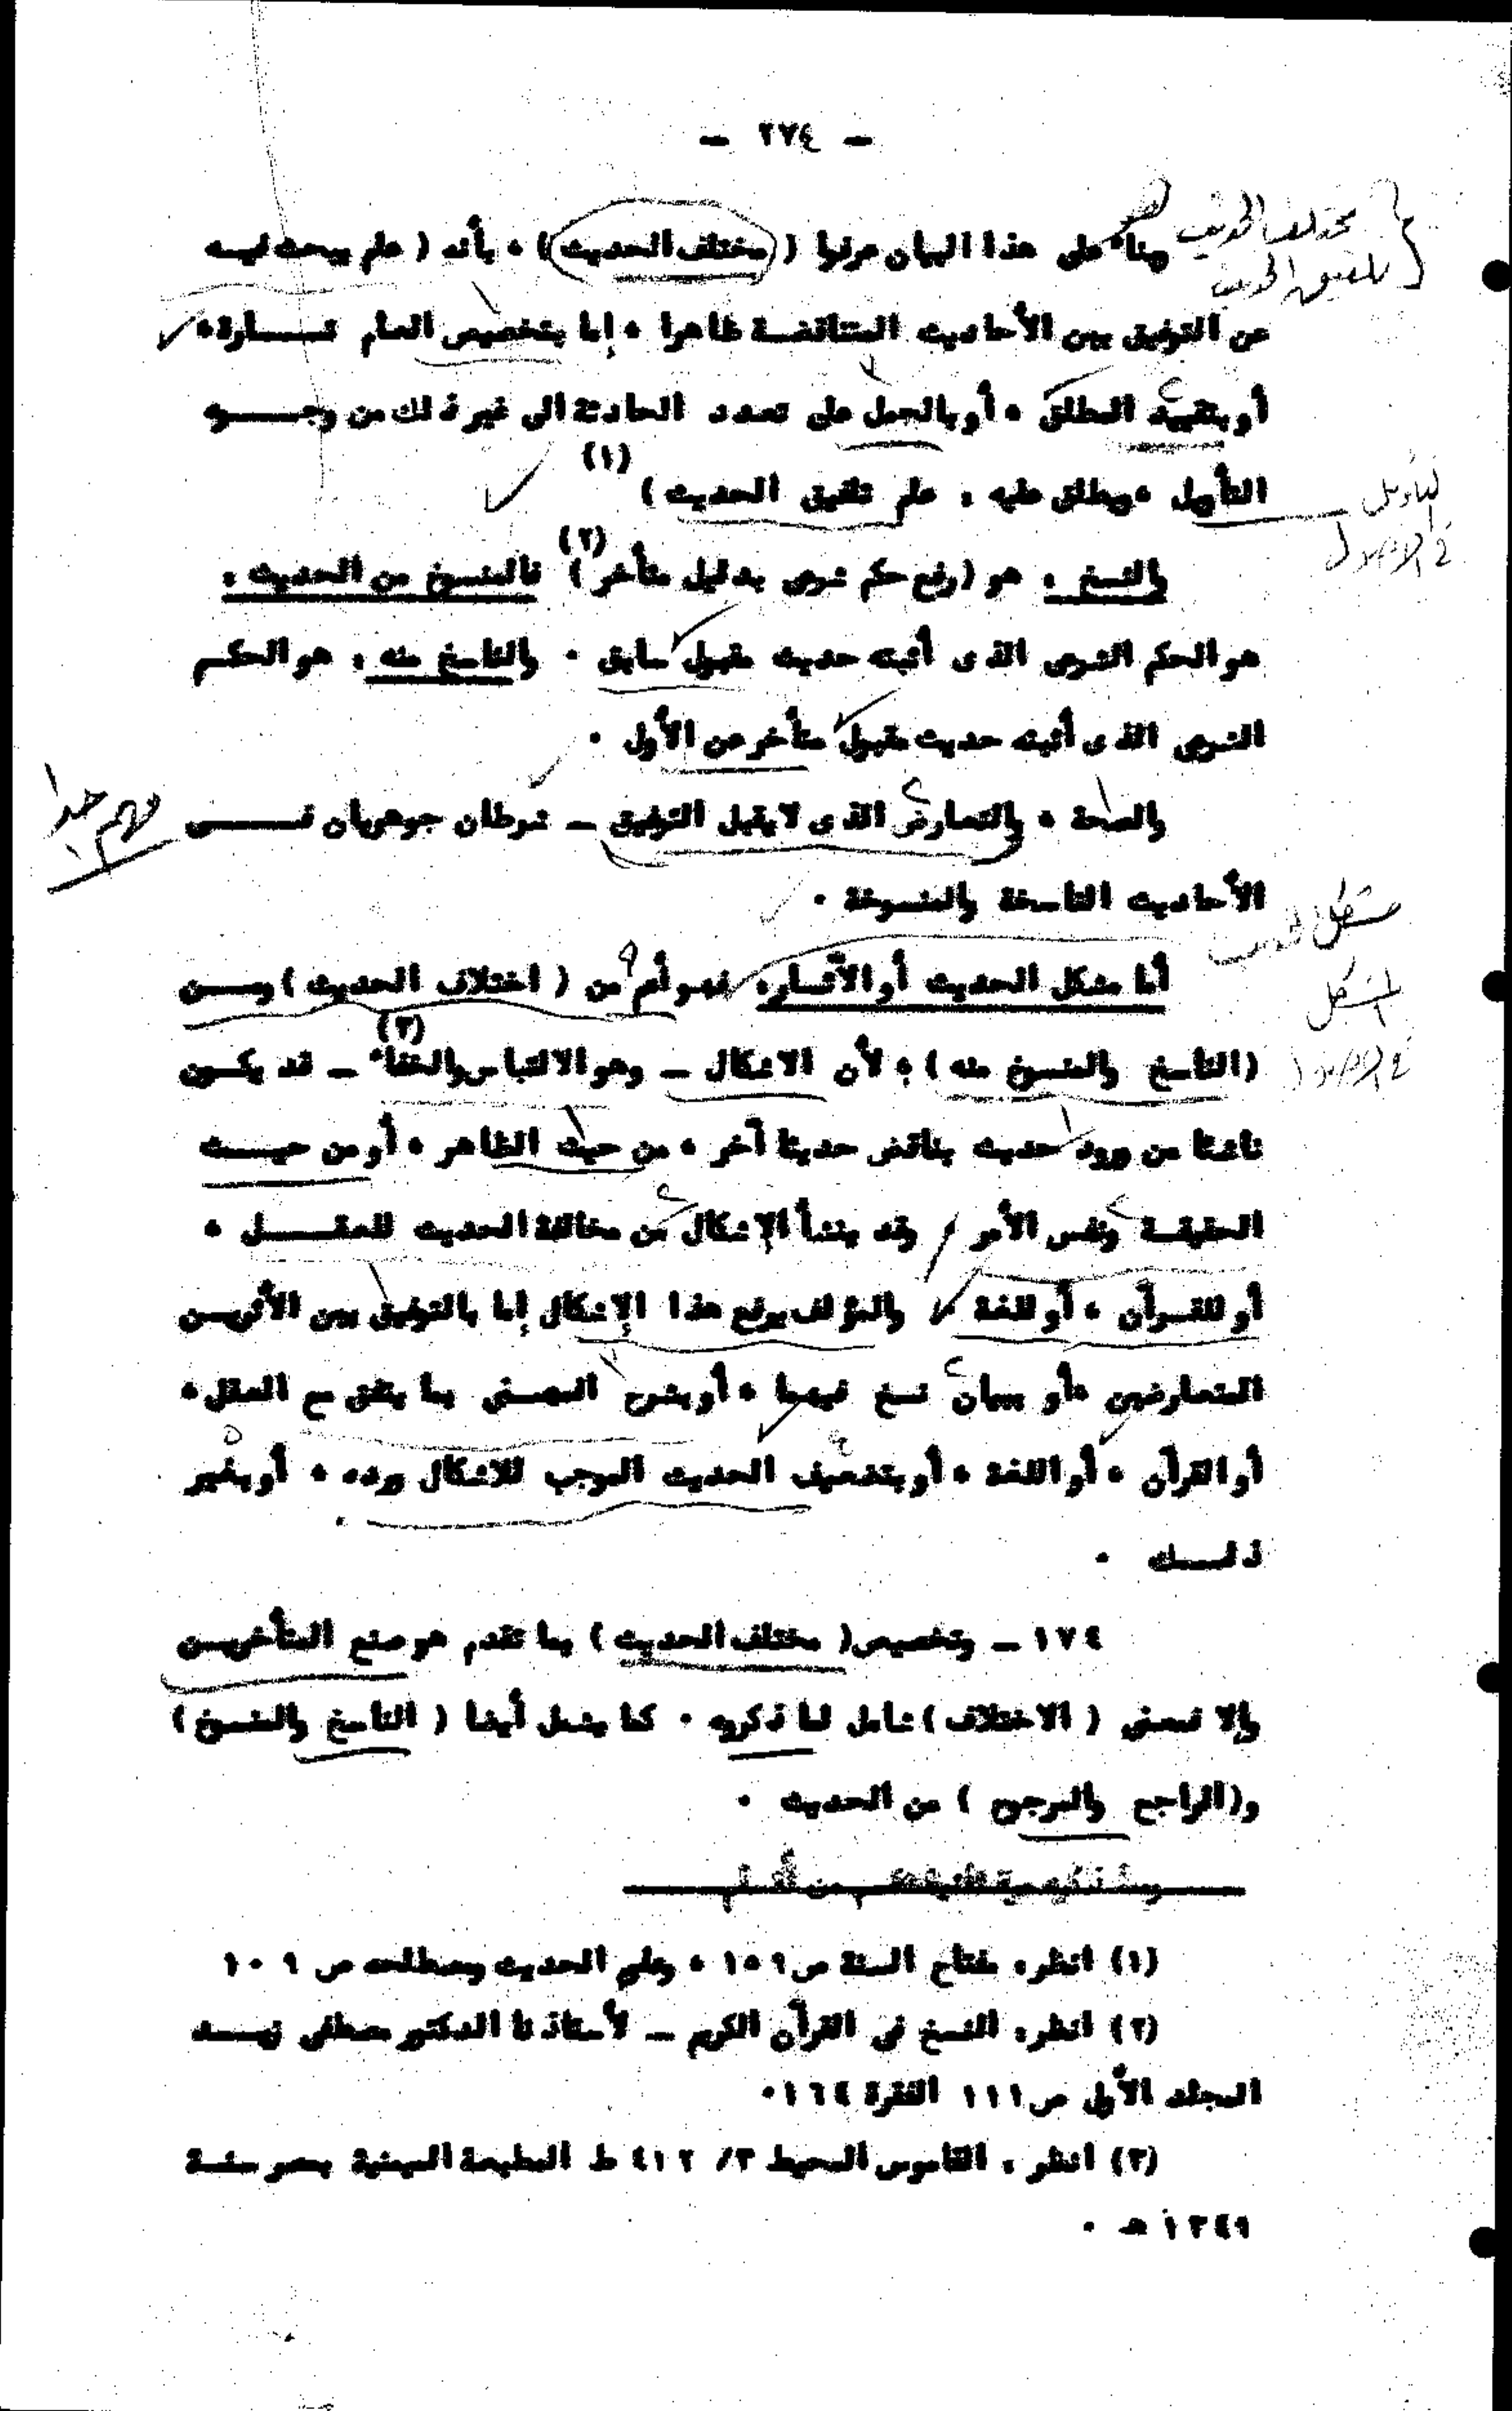 — ٢٧٤ —
وبناء على هذا البيان عرفوا ( مختلف الحديث ) ، بأنه ( علم يبحث فيه
مختلف الحديث
تلفيق الحديث
عن التوفيق بين الأحاديث المتناقضة ظاهرا ، إما بتخصيص العام تارة ،
أو بتقييد المطلق ، أو بالحمل على تعدد الحادثة الى غير ذلك من وجوه
التأويل ، ويطلق عليه : علم تلفيق الحديث ) (١)
التأويل
في الأصول
والنسخ : هو ( رفع حكم شرعى بدليل متأخر ) (٢) فالمنسوخ من الحديث :
هو الحكم الشرعى الذى أثبته حديث مقبول سابق . والناسخ منه : هو الحكم
الشرعى الذى أثبته حديث مقبول متأخر عن الأول .
والصحة ، والتعارض الذى لا يقبل التوفيق — شرطان جوهريان فى
مهم جدا
الأحاديث الناسخة والمنسوخة .
مشكل الحديث
أما مشكل الحديث أو الآثار : فهو أعم من ( اختلاف الحديث ) ومن
المشكل
(الناسخ والمنسوخ منه ) ؛ لأن الاشكال — وهو الالتباس والخفاء (٣) — قد يكون
في الأصول
ناشئا من ورود حديث يناقض حديثا آخر ، من حيث الظاهر ، أو من حيث
الحقيقة ونفس الأمر / وقد ينشأ الإشكال من مخالفة الحديث للعقل ،
أو للقرآن ، أو للغة / والمؤلف يرفع هذا الإشكال إما بالتوفيق بين الأثرين
المتعارضين ، أو ببيان نسخ فيهما ، أو بشرح المعنى بما يتفق مع العقل ،
أو القرآن ، أو اللغة ، أو بتضعيف الحديث الموجب للاشكال ورده ، أو بغير
ذلك .
١٧٤ — وتخصيص ( مختلف الحديث ) بما تقدم هو صنع المتأخرين
وإلا فمعنى ( الاختلاف ) شامل لما ذكروه . كما يشمل أيضا ( الناسخ والمنسوخ )
و(الراجح والمرجوح ) من الحديث .
(١) انظر : مفتاح السنة ص ١٥٩ ، وعلوم الحديث ومصطلحه ص ١٠٩
(٢) انظر : النسخ فى القرآن الكريم — لأستاذنا الدكتور مصطفى زيد
المجلد الأول ص ١١١ الفقرة ١٦٤ .
(٣) انظر : القاموس المحيط ٣/ ٤١٢ ط المطبعة الميمنية بمصر سنة
١٣٤٩ هـ .